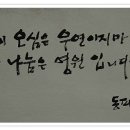 이 오심은 우연이지만
나눔은 영원 입니다